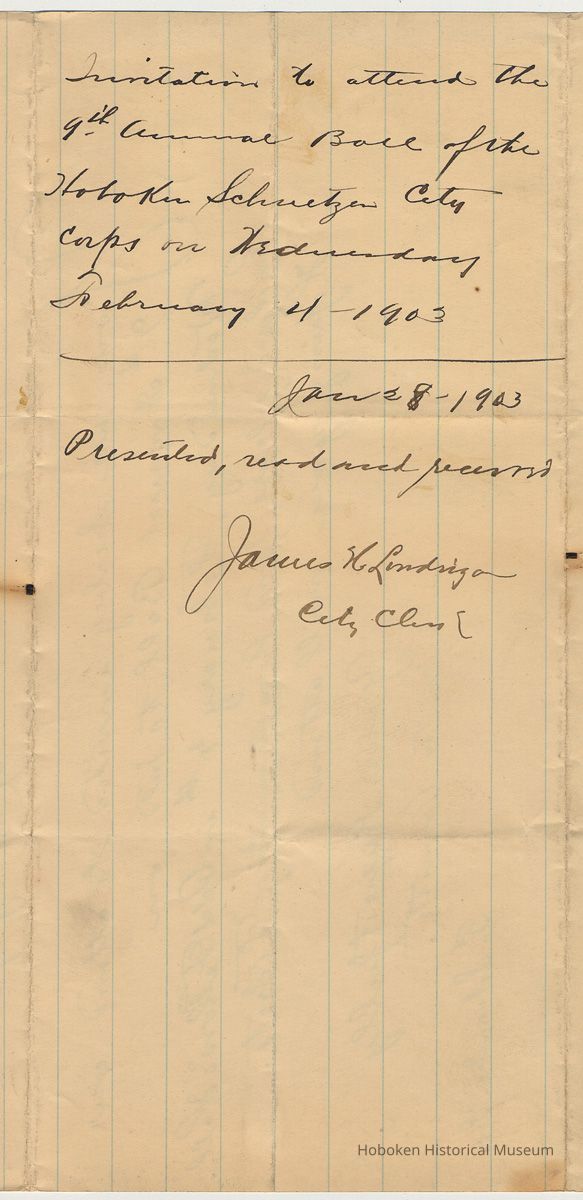 Invitation to attend the
9th Annual Ball of the
Hoboken Schuetzen City
Corps on Wednesday
February 4 - 1903
Jan 28 - 1903
Presented, read and received
James H Londrigan
City Clerk
Hoboken Historical Museum